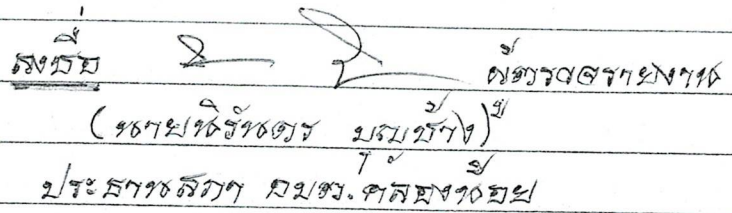 ลงชื่อ ผู้ตรวจรายงาน
(นายนิรันดร บุญช้าง)
ประธานสภา อบต.คลองน้อย